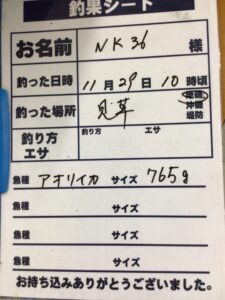 釣果シート
お名前 NK36 様
釣った日時 11月29日10時頃
釣った場所 見草 沖磯 堤防
釣り方 エサ 釣り方 エサ
魚種 アオリイカ サイズ 765g
魚種 サイズ
魚種 サイズ
魚種 サイズ
お持ち込みありがとうございました。